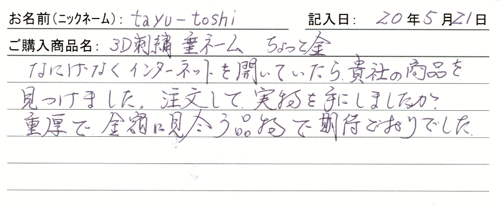 お名前(ニックネーム): tayu-toshi 記入日: 20年5月21日
ご購入商品名: 3D刺繍 垂ネーム ちょっと金
なにげなくインターネットを開いていたら、貴社の商品を
見つけました。注文して、実物を手にしましたが、
重厚で金額に見合う品物で期待どおりでした。